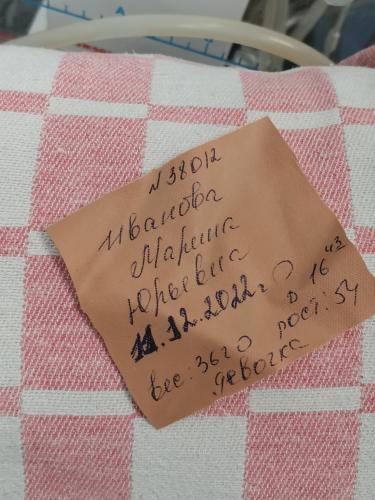 N 38012
Иванова
Марина
Юрьевна
11.12.2022г в 16 43
вес: 3620 рост: 54
девочка